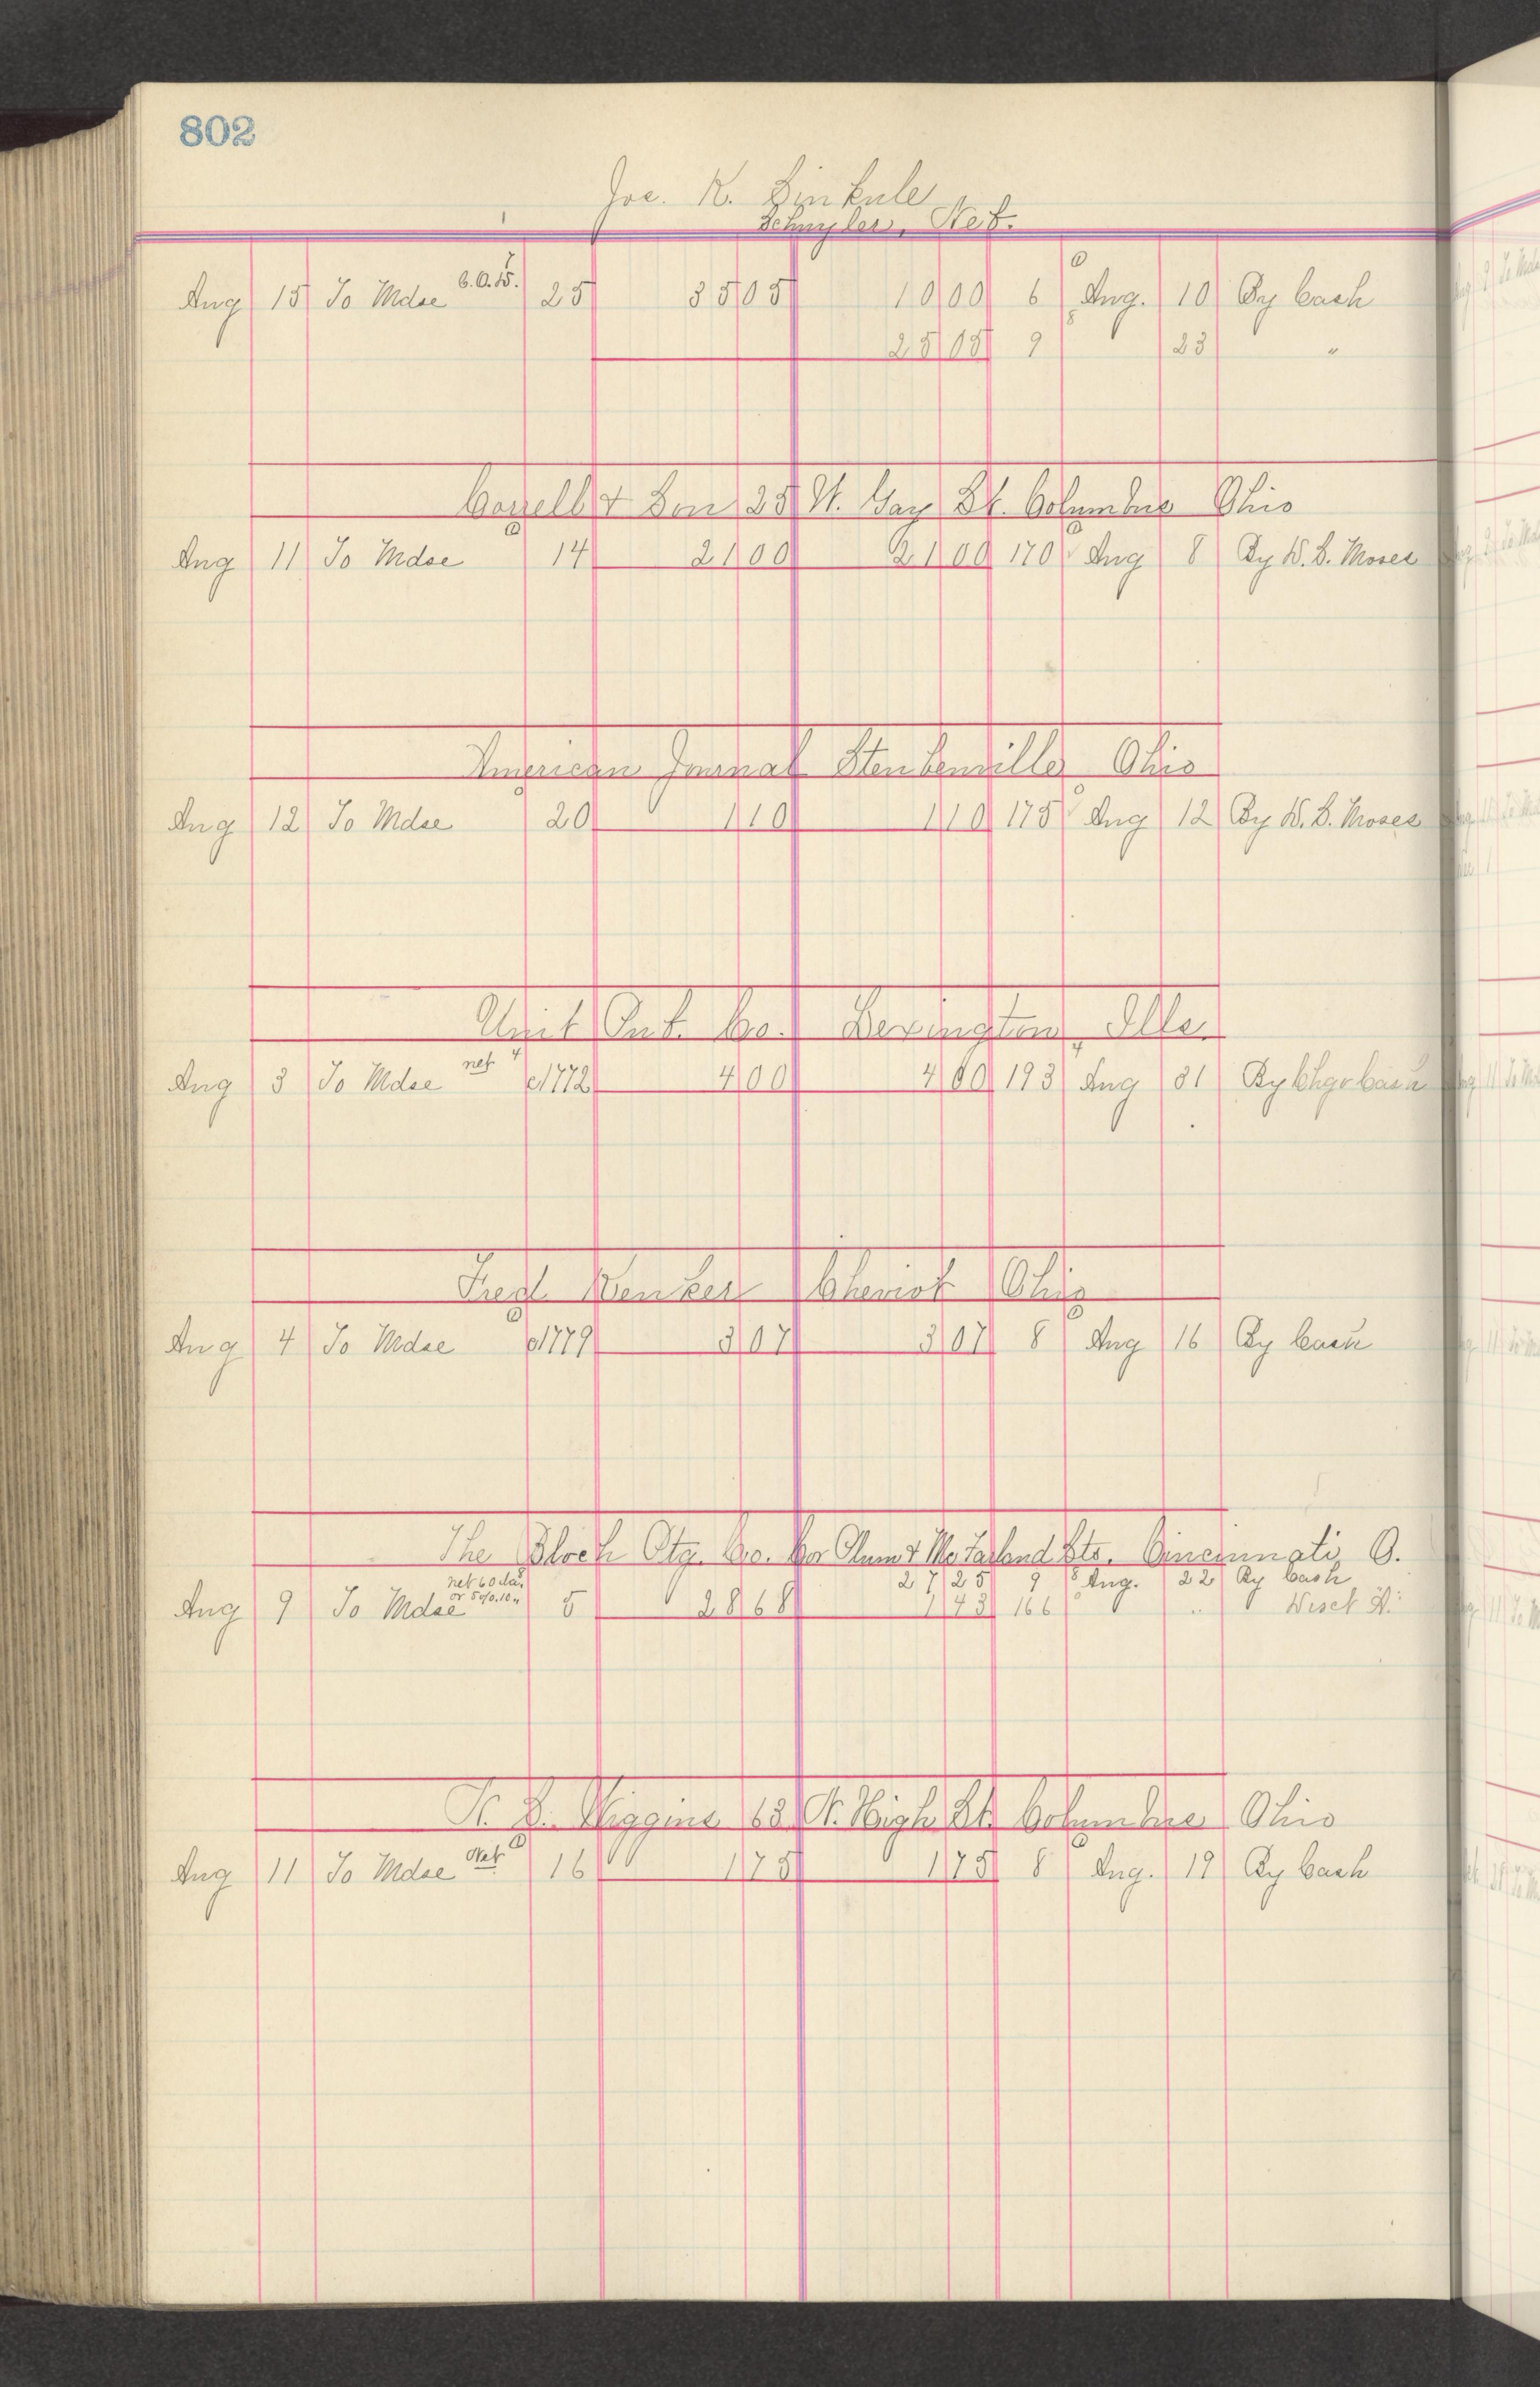 802
Joe. K. Zinkule
Schuyler, Neb.
Aug 15 To Mdse C.O.D. 25 35 05 10 00 6 Aug. 10 By Cash
25 05 9 23 "
& Son 35 N. Gay St. Columbus Ohio
Aug 11 To Mdse 14 21 00 21 00 170 Aug 8 By W. S. Moses
American Journal Steubenville Ohio
Aug 12 To Mdse 20 1 10 1 10 175 Aug 12 By W. S. Moses
Unit Co. Lexington, Ills.
Aug 3 To Mdse net c1772 4 00 4 00 193 Aug 31 By Chge Cash
Fred Cheviot Ohio
Aug 4 To Mdse c1779 3 07 3 07 8 Aug 16 By Cash
The Bloch Ctg. Co. Cor Plum & McFarland Sts. Cincinnati, O.
net 60 da. 27 25 9 Aug. 22 By Cash
or 5% 10 "
Aug 9 To Mdse 5 28 68 1 43 166 " Disct
Higgins N. High St. Columbus Ohio
Aug 11 To Mdse Net 16 1 75 1 75 8 Aug. 19 By Cash